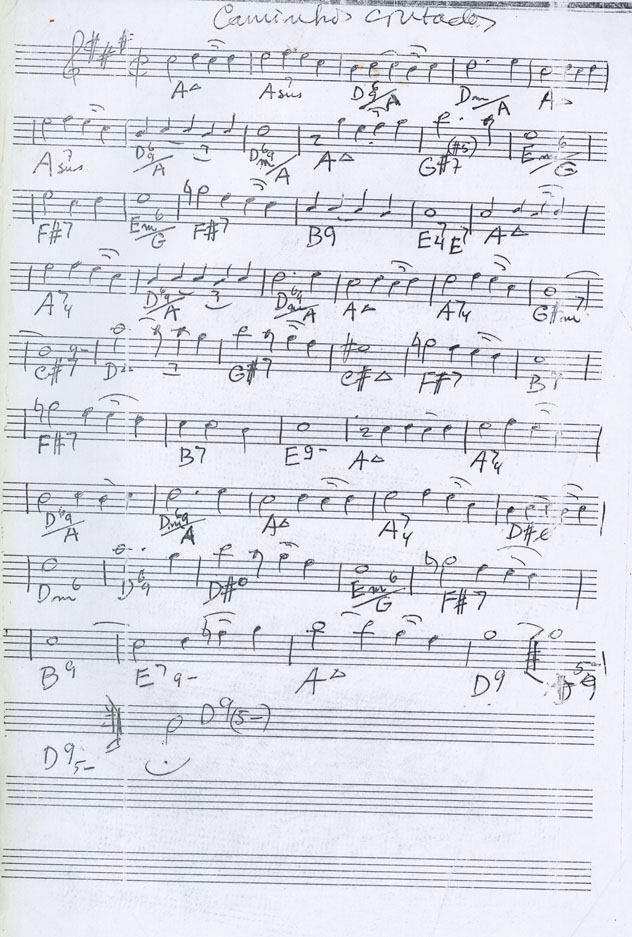 Caminhos cruzados
A△ A7sus D6/9/A Dm/A A△
A7sus D6/9/A 3 Dm6/9/A A△ G#7(#5) Em6/G
F#7 Em6/G F#7 B9 E4 E7 A△
A7/4 D6/9/A 3 Dm6/9/A A△ A7/4 G#m7
C#7 D△ 3 G#7 C#△ F#7 B7
F#7 B7 E9- A△ A7/4
D6/9/A Dm6/9/A A△ A7/4 D#
Dm6 D6/9 D#° Em6/G F#7
B9 E7 9- A△ D9 D5-/9
D9 5- D9(5-)